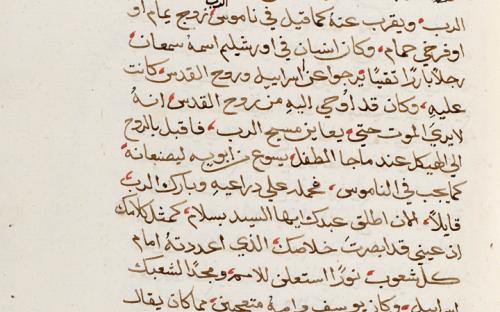 الرب ويقرب عنه كما قيل في ناموس الرب زوج يمام او
او فرخي حمام وكان انسان في اورشليم اسمه سمعان
رجلا بارا تقيا يرجوا عزا اسراييل وروح القدس كانت
عليه وكان قد اوحي اليه من روح القدس انه
لا يري الموت حتي يعاين مسيح الرب فاقبل بالروح
الي الهيكل عند ما جا الطفل يسوع من ابويه ليصنعا عنه
كما يجب في الناموس فحمله علي دراعيه وبارك الرب
قايلا الان اطلق عبدك ايها السيد بسلام كمثل كلامك
ان عيني قد ابصرت خلاصك الذي اعددته امام
كل الشعوب نورا استعلن للامم ومجدا لشعبك
اسراييل وكان يوسف وامه متعجبين مما كان يقال